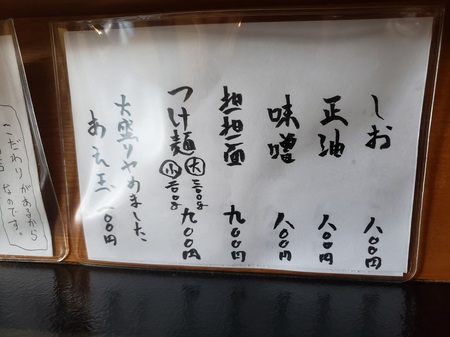 しお 八〇〇円
正油 八〇〇円
味噌 八〇〇円
担担面 九〇〇円
つけ麺 大 三〇〇g 小 二〇〇g 九〇〇円
大盛りやめました
あえ玉 二〇〇円
こだわりがあるから
なのです。